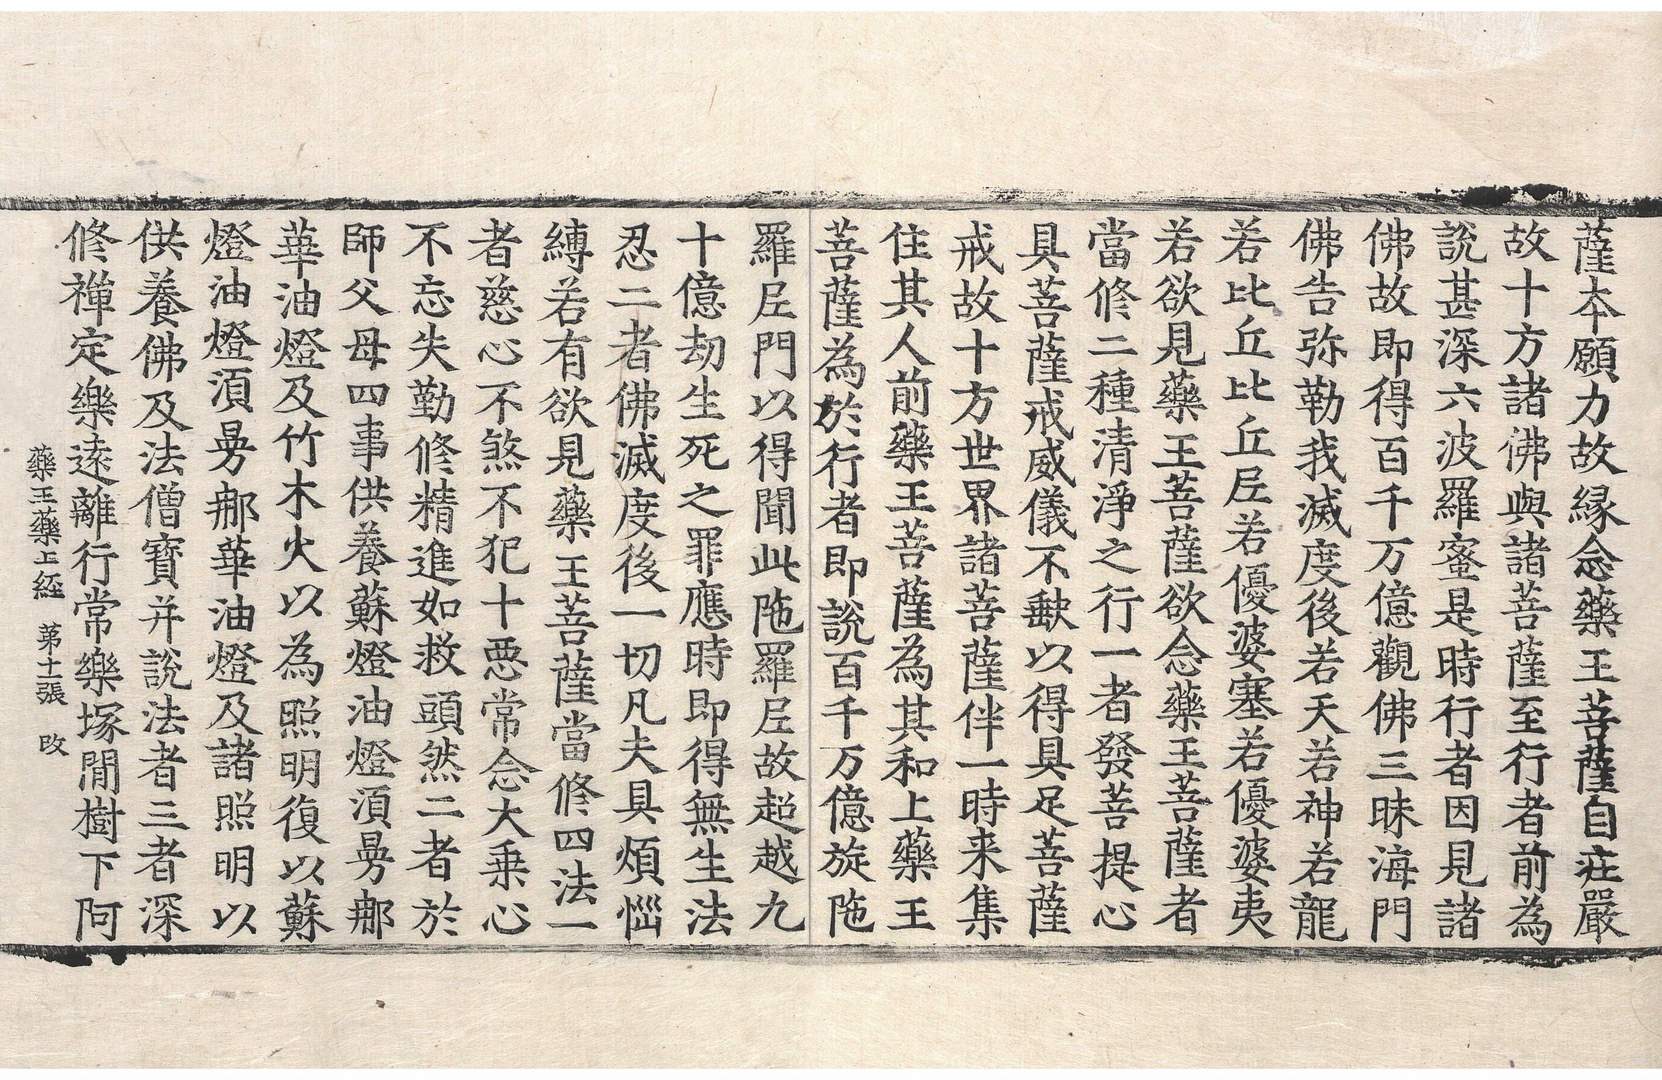 薩本願力故緣念藥王菩薩自在嚴
故十方諸佛與諸菩薩至行者前為
說甚深六波羅蜜是時行者因見諸
佛故即得百千万億觀佛三昧海門
佛告弥勒我滅度後若天若神若龍
若比丘比丘尼若優婆塞若優婆夷
若欲見藥王菩薩欲念藥王菩薩者
當修二種清淨之行一者發菩提心
具菩薩戒威儀不缺以得具足菩薩
戒故十方世界諸菩薩伴一時来集
住其人前藥王菩薩為其和上藥王
菩薩為於行者即說百千万億旋陁
羅尼門以得聞此陁羅尼故超越九
十億劫生死之罪應時即得無生法
忍二者佛滅度後一切凡夫具煩惱
縛若有欲見藥王菩薩當修四法一
者慈心不煞不犯十惡常念大乗心
不忘失勤修精進如救頭然二者於
師父母四事供養蘇燈油燈湏曼那
華油燈及竹木火以為照明復以蘇
燈油燈湏曼那華油燈及諸照明以
供養佛及法僧寶并說法者三者深
修禪定樂遠離行常樂塚間樹下阿
藥王藥上經 第十一張 改